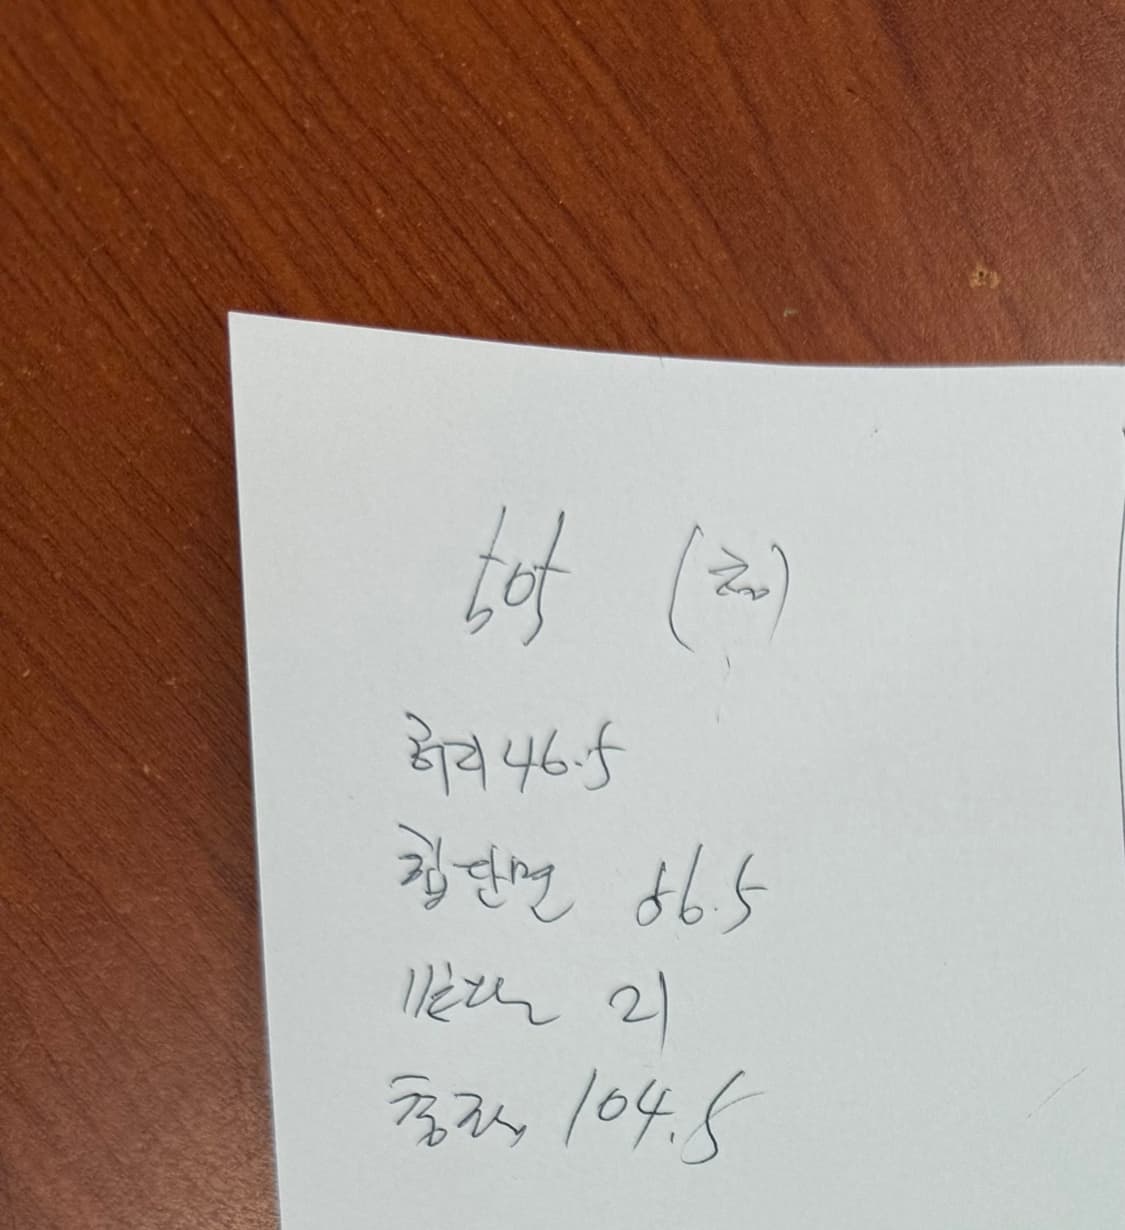 허리 46.5
힙단면 56.5
밑단 21
총장 104.5